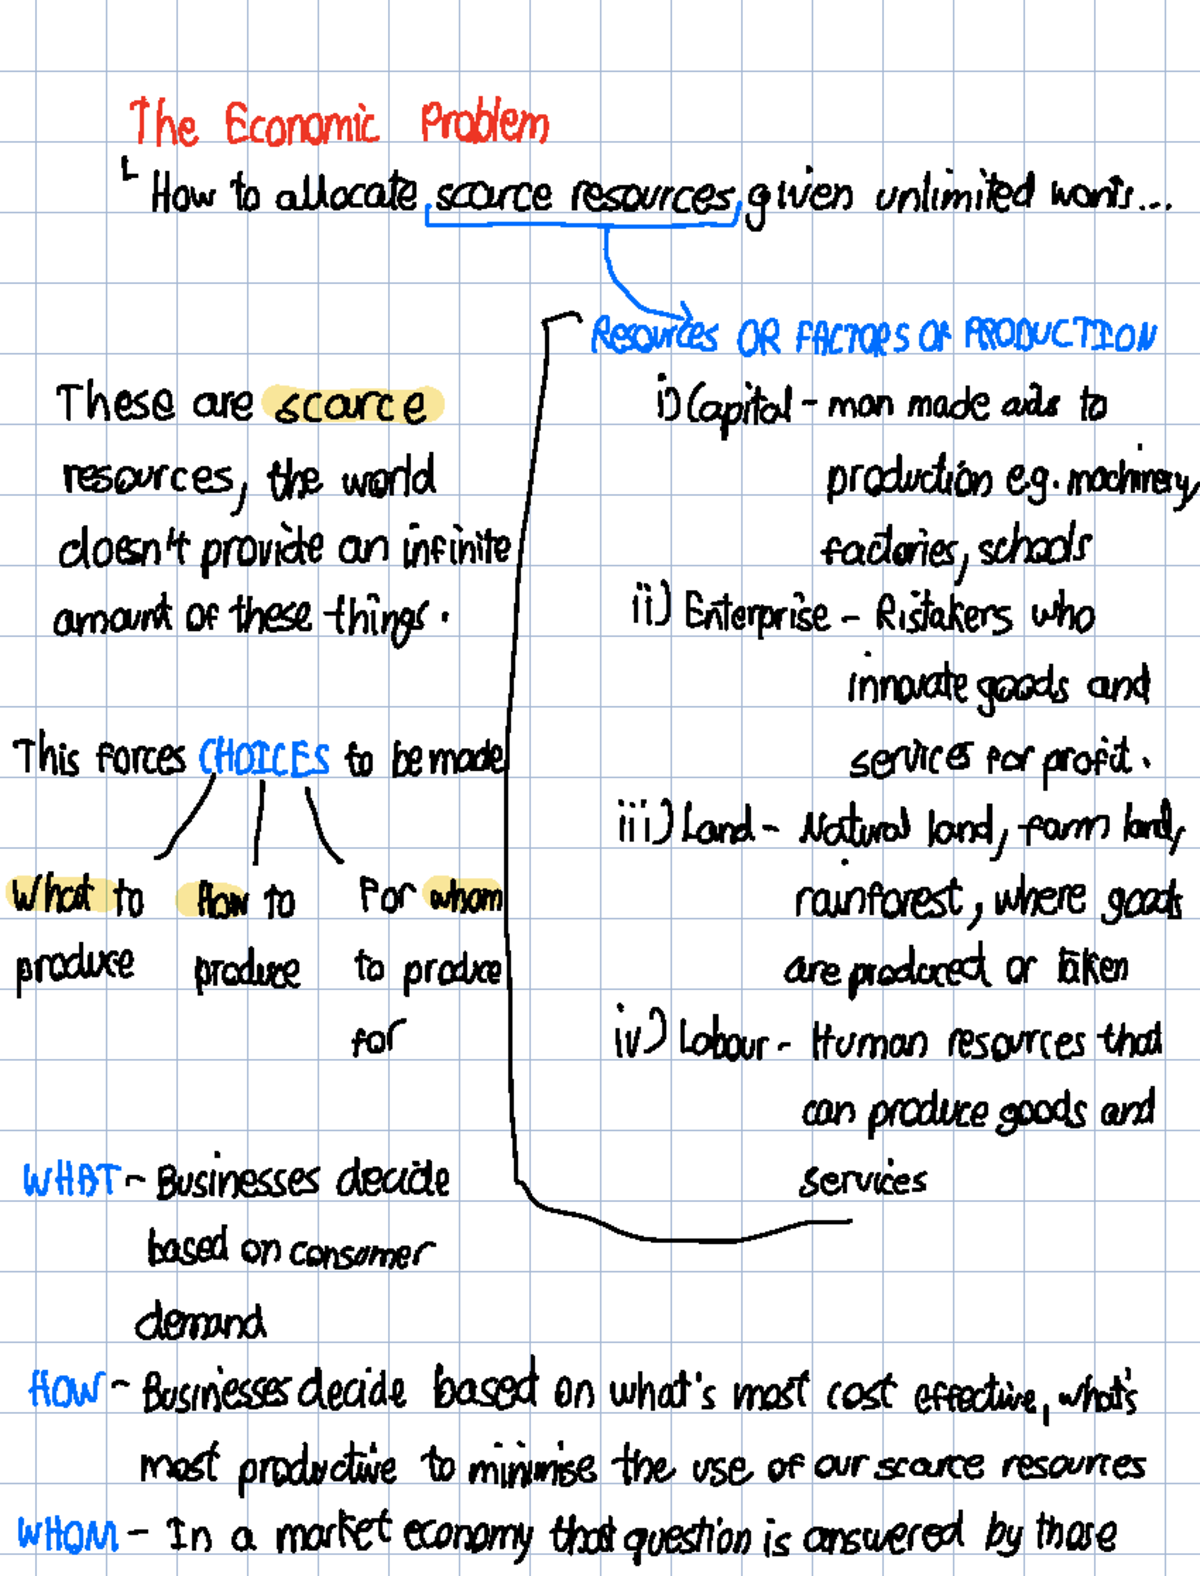 The Economic Problem
How to allocate scarce resources given unlimited wants...
Resources OR FACTORS OF PRODUCTION
i) Capital - man made aids to
production e.g. machinery,
factories, schools
ii) Enterprise - Ristakers who
innovate goods and
services for profit.
iii) Land - Natural land, farm land,
rainforest, where goods
are produced or taken
iv) Labour - Human resources that
can produce goods and
services
These are scarce
resources, the world
doesn't provide an infinite
amount of these things.
This forces CHOICES to be made
What to
produce
How to
produce
For whom
to produce
for
WHAT - Businesses decide
based on consumer
demand
HOW - Businesses decide based on what's most cost effective, what's
most productive to minimise the use of our scarce resources
WHOM - In a market economy that question is answered by those